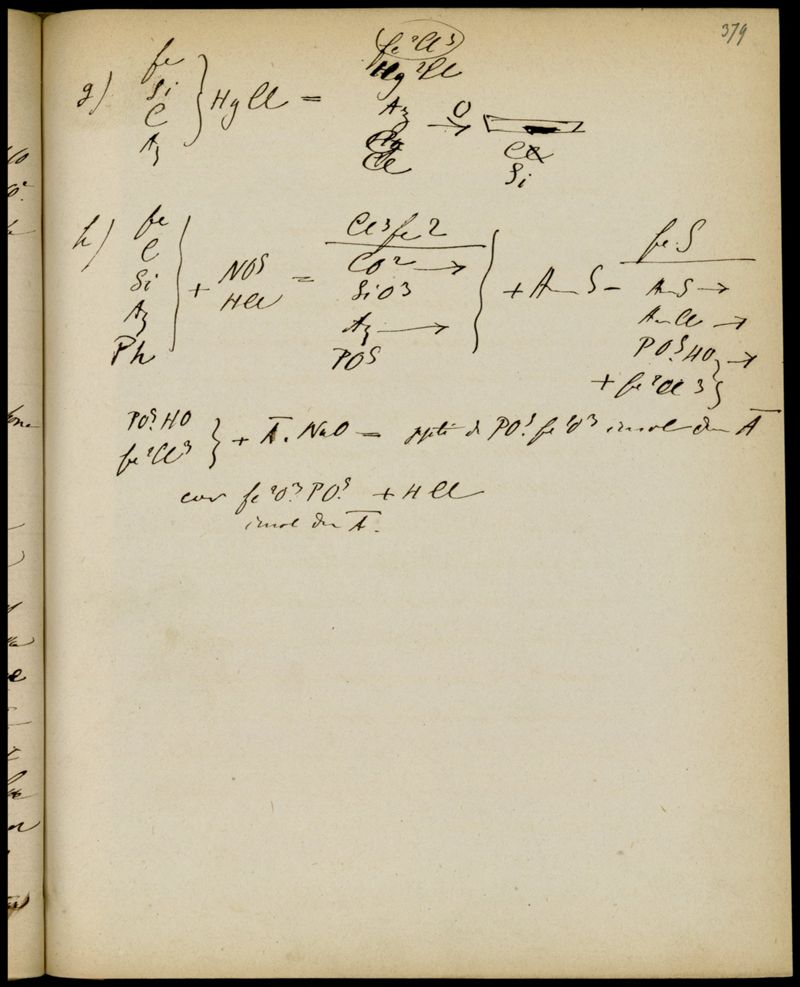 379
g) fe Si C Az } HgCl = fe²Cl³
Hg²Cl
Az O →
Cl
Si
h) fe C Si Az Ph } + NO5 HCl = Cl3fe2
CO2 →
SiO3
Az →
PO5
} + Am S – fe.S
AmS →
AmCl →
PO5.HO →
+ fe²Cl3 }
PO5.HO
fe²Cl3 } + A. NaO = ppté de PO5. fe²O3 insol dn A
car fe²O3.PO5. + HCl
insol dn A.